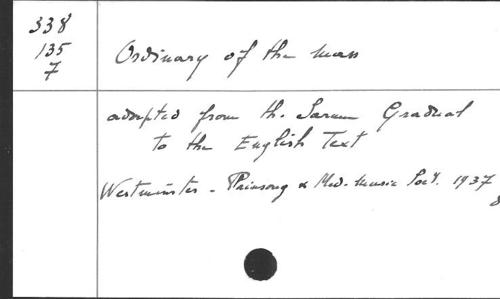 338
135
7
Ordinary of the Mass
adapted from the Sarum Gradual
to the English Text
Westminster - Plainsong & Med. Music Socy. 1937
8